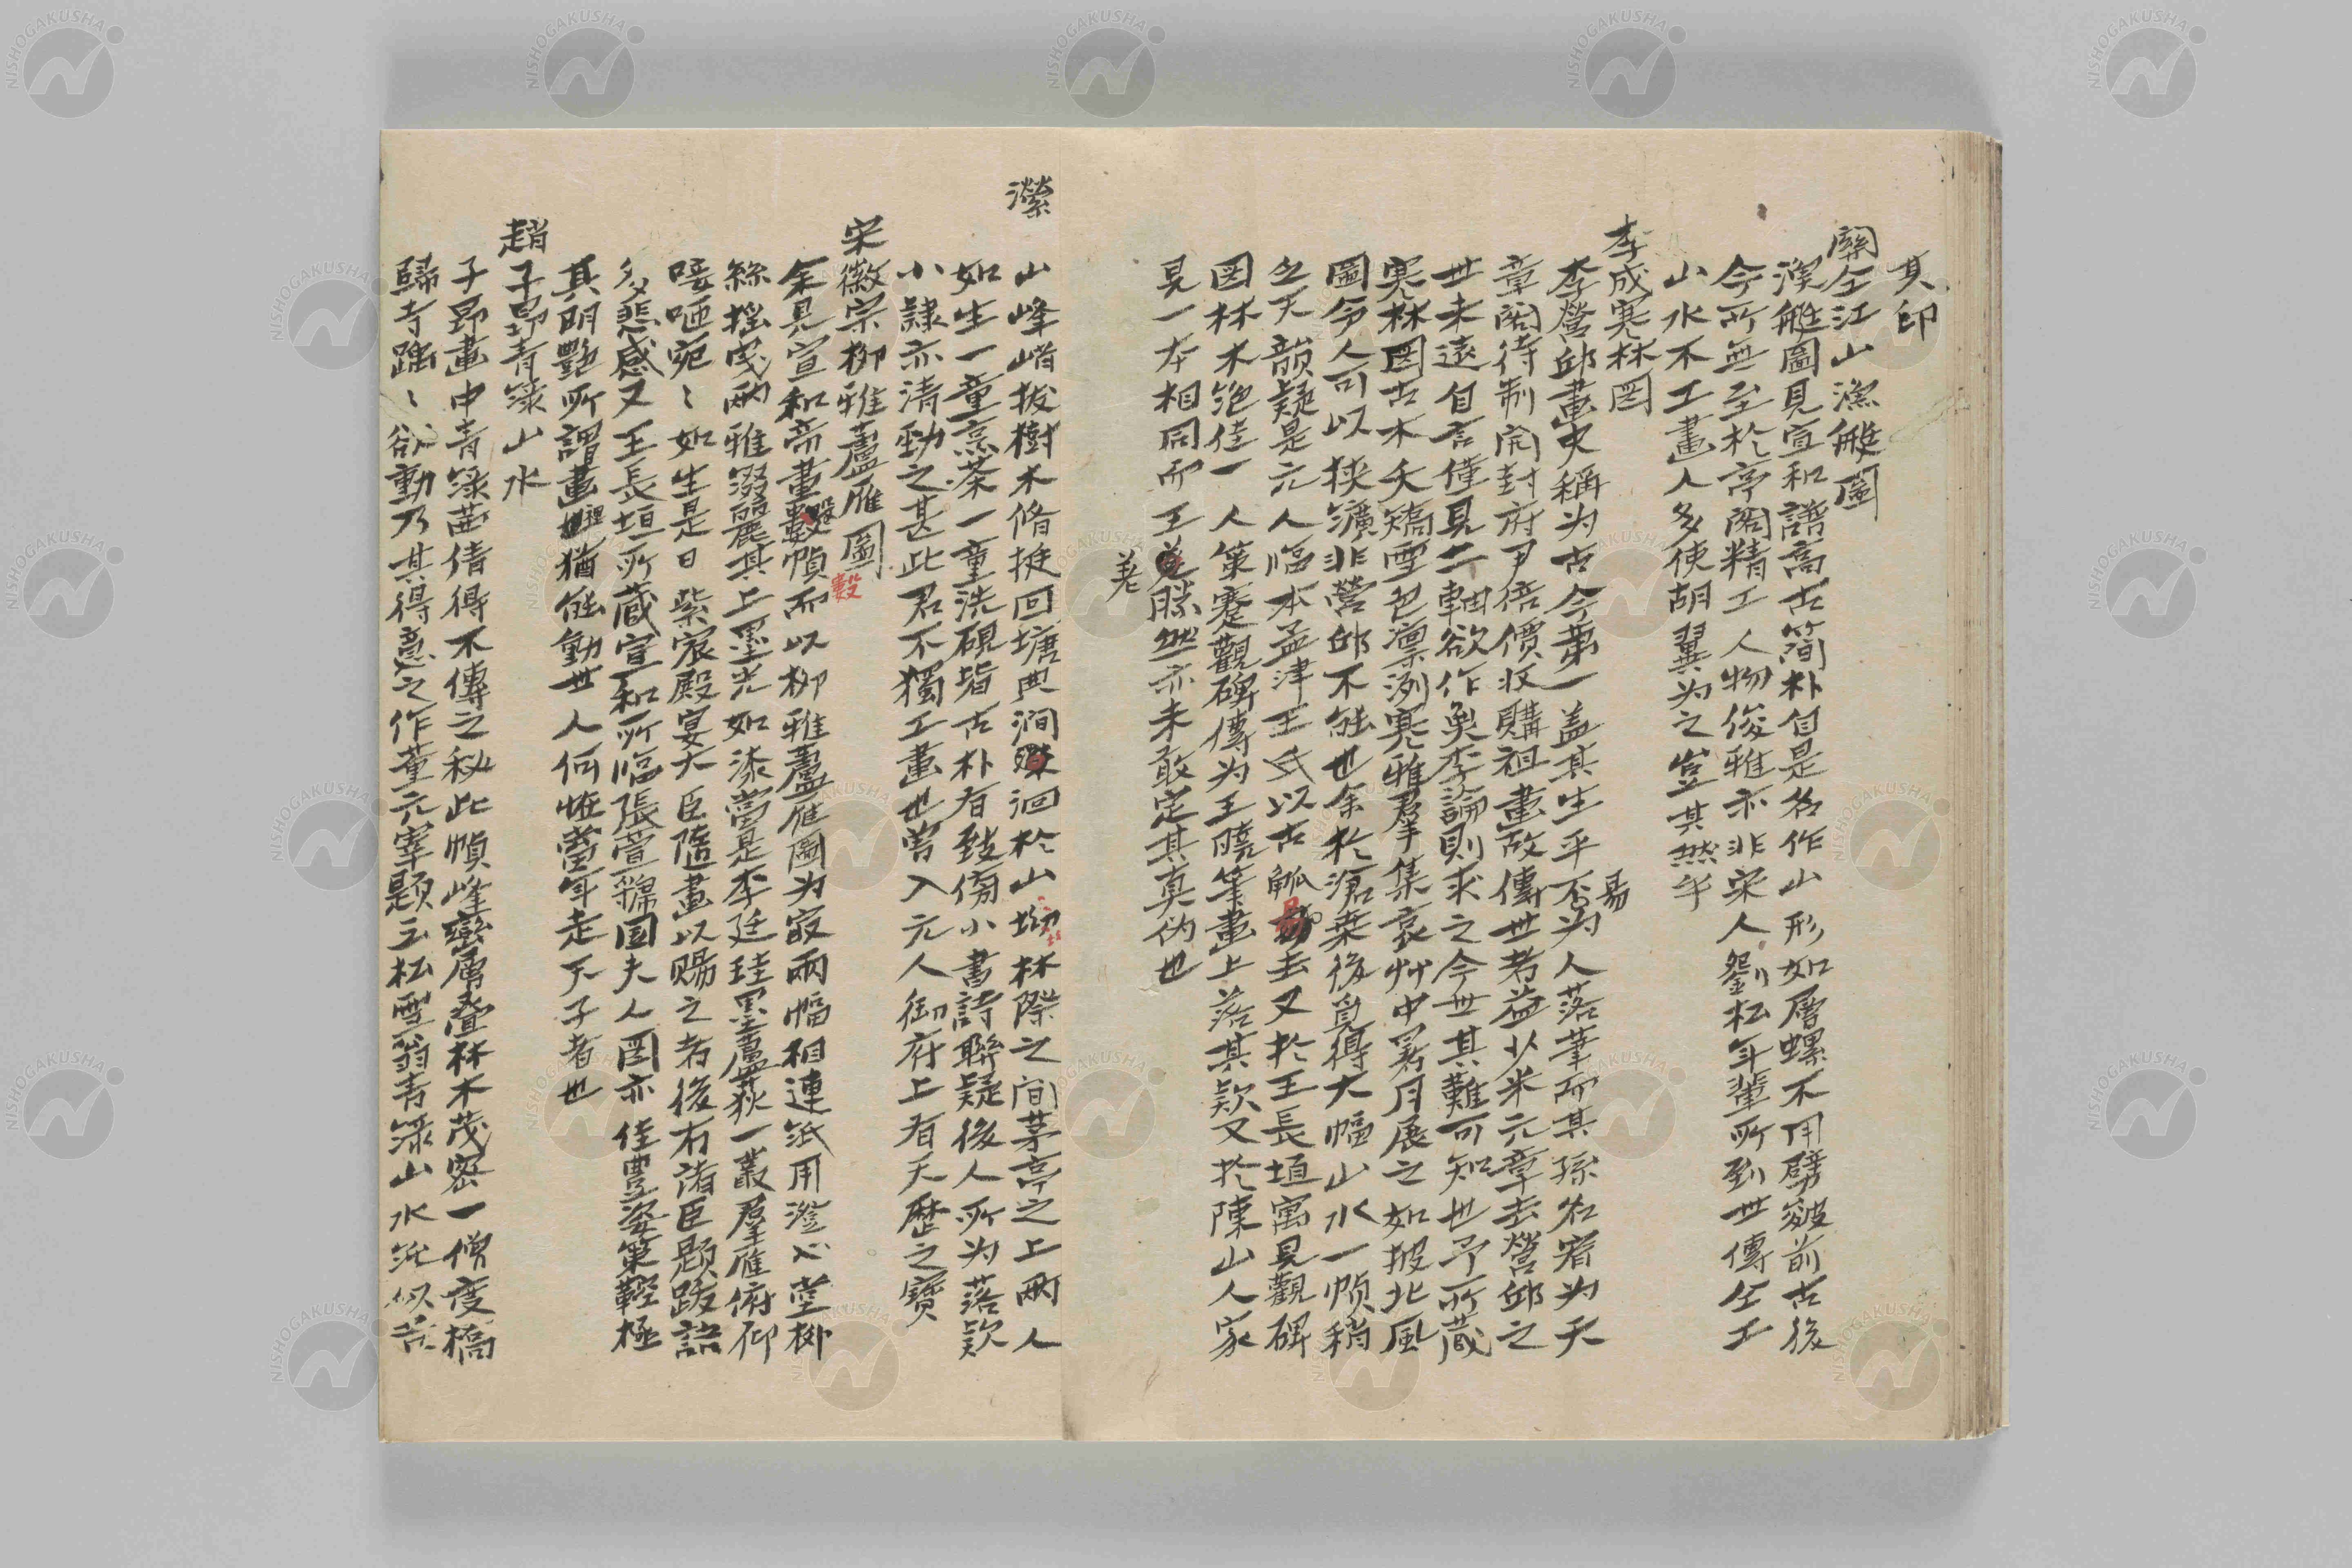 其印
關仝江山漁艇圖
漁艇圖見宣和譜高古簡朴自是名作山形如層螺不用劈皴前古後
今所無至於亭閣精工人物俊雅亦非宋人劉松年輩所到世傳仝工
山水不工畫人多使胡翼为之豈其然乎
李成寒林図
李營邱畫史稱为古今第一盖其生平不为人落筆而其孫名宥为天
易
章閣待制開封府尹倍價收購祖畫故傳世者益少米元章去營邱之
世未遠自言僅見二軸欲作無李論則求之今世其難可知也予所蔵
寒林図古木夭矯雪色凛冽寒雅羣集衰艸中暑月展之如披北風
圖令人可以挾纊非營邱不能也余於滄桑後覓得大幅山水一幀稍
乏天韻疑是元人臨本孟津王氏以古觚易去又於王長垣寓見觀碑
図林木絶佳一人策蹇觀碑傳为王曉筆畫上落其欵又於陳山人家
見一本相同而王差勝然亦未敢定其真偽也
差
瀠
山峰峭拔樹木脩挺回塘典澗瀠洄於山坳林際之间茅亭之上兩人
如生一童烹茶一童洗硯皆古朴有致傍小書詩聯疑後人所为落欵
小隷亦清勁之甚此君不獨工畫也曽入元人御府上有天歴之寶
宋徽宗柳雅蘆雁圖
數
余見宣和帝畫數幀而以柳雅蘆雁圖为㝡兩幅相連紙用澄心堂柳
絲揺曳兩雅濴麗其上墨光如漆當是李廷珪墨蘆荻一叢羣雁俯仰
唼咂宛〻如生是日紫宸殿宴大臣隨畫以賜之者後有諸臣題跋詰
多悲感又王長垣所蔵宣和所臨張萱虢国夫人図亦佳豊姿策輕極
其明艶所謂畫裡猶能動世人何恠當年走天子者也
趙子昂青渌山水
子昻畫中青渌茜倩得不傳之秘此幀峰巒層疊林木茂密一僧度橋
歸寺踽〻欲動乃其得意之作董元宰題云松雪翁青渌山水法似